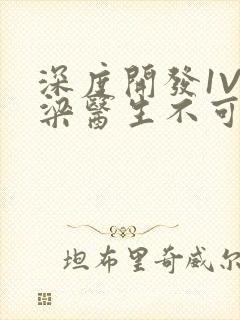 深度開發1V
梁醫生不可
坦布里奇威尔